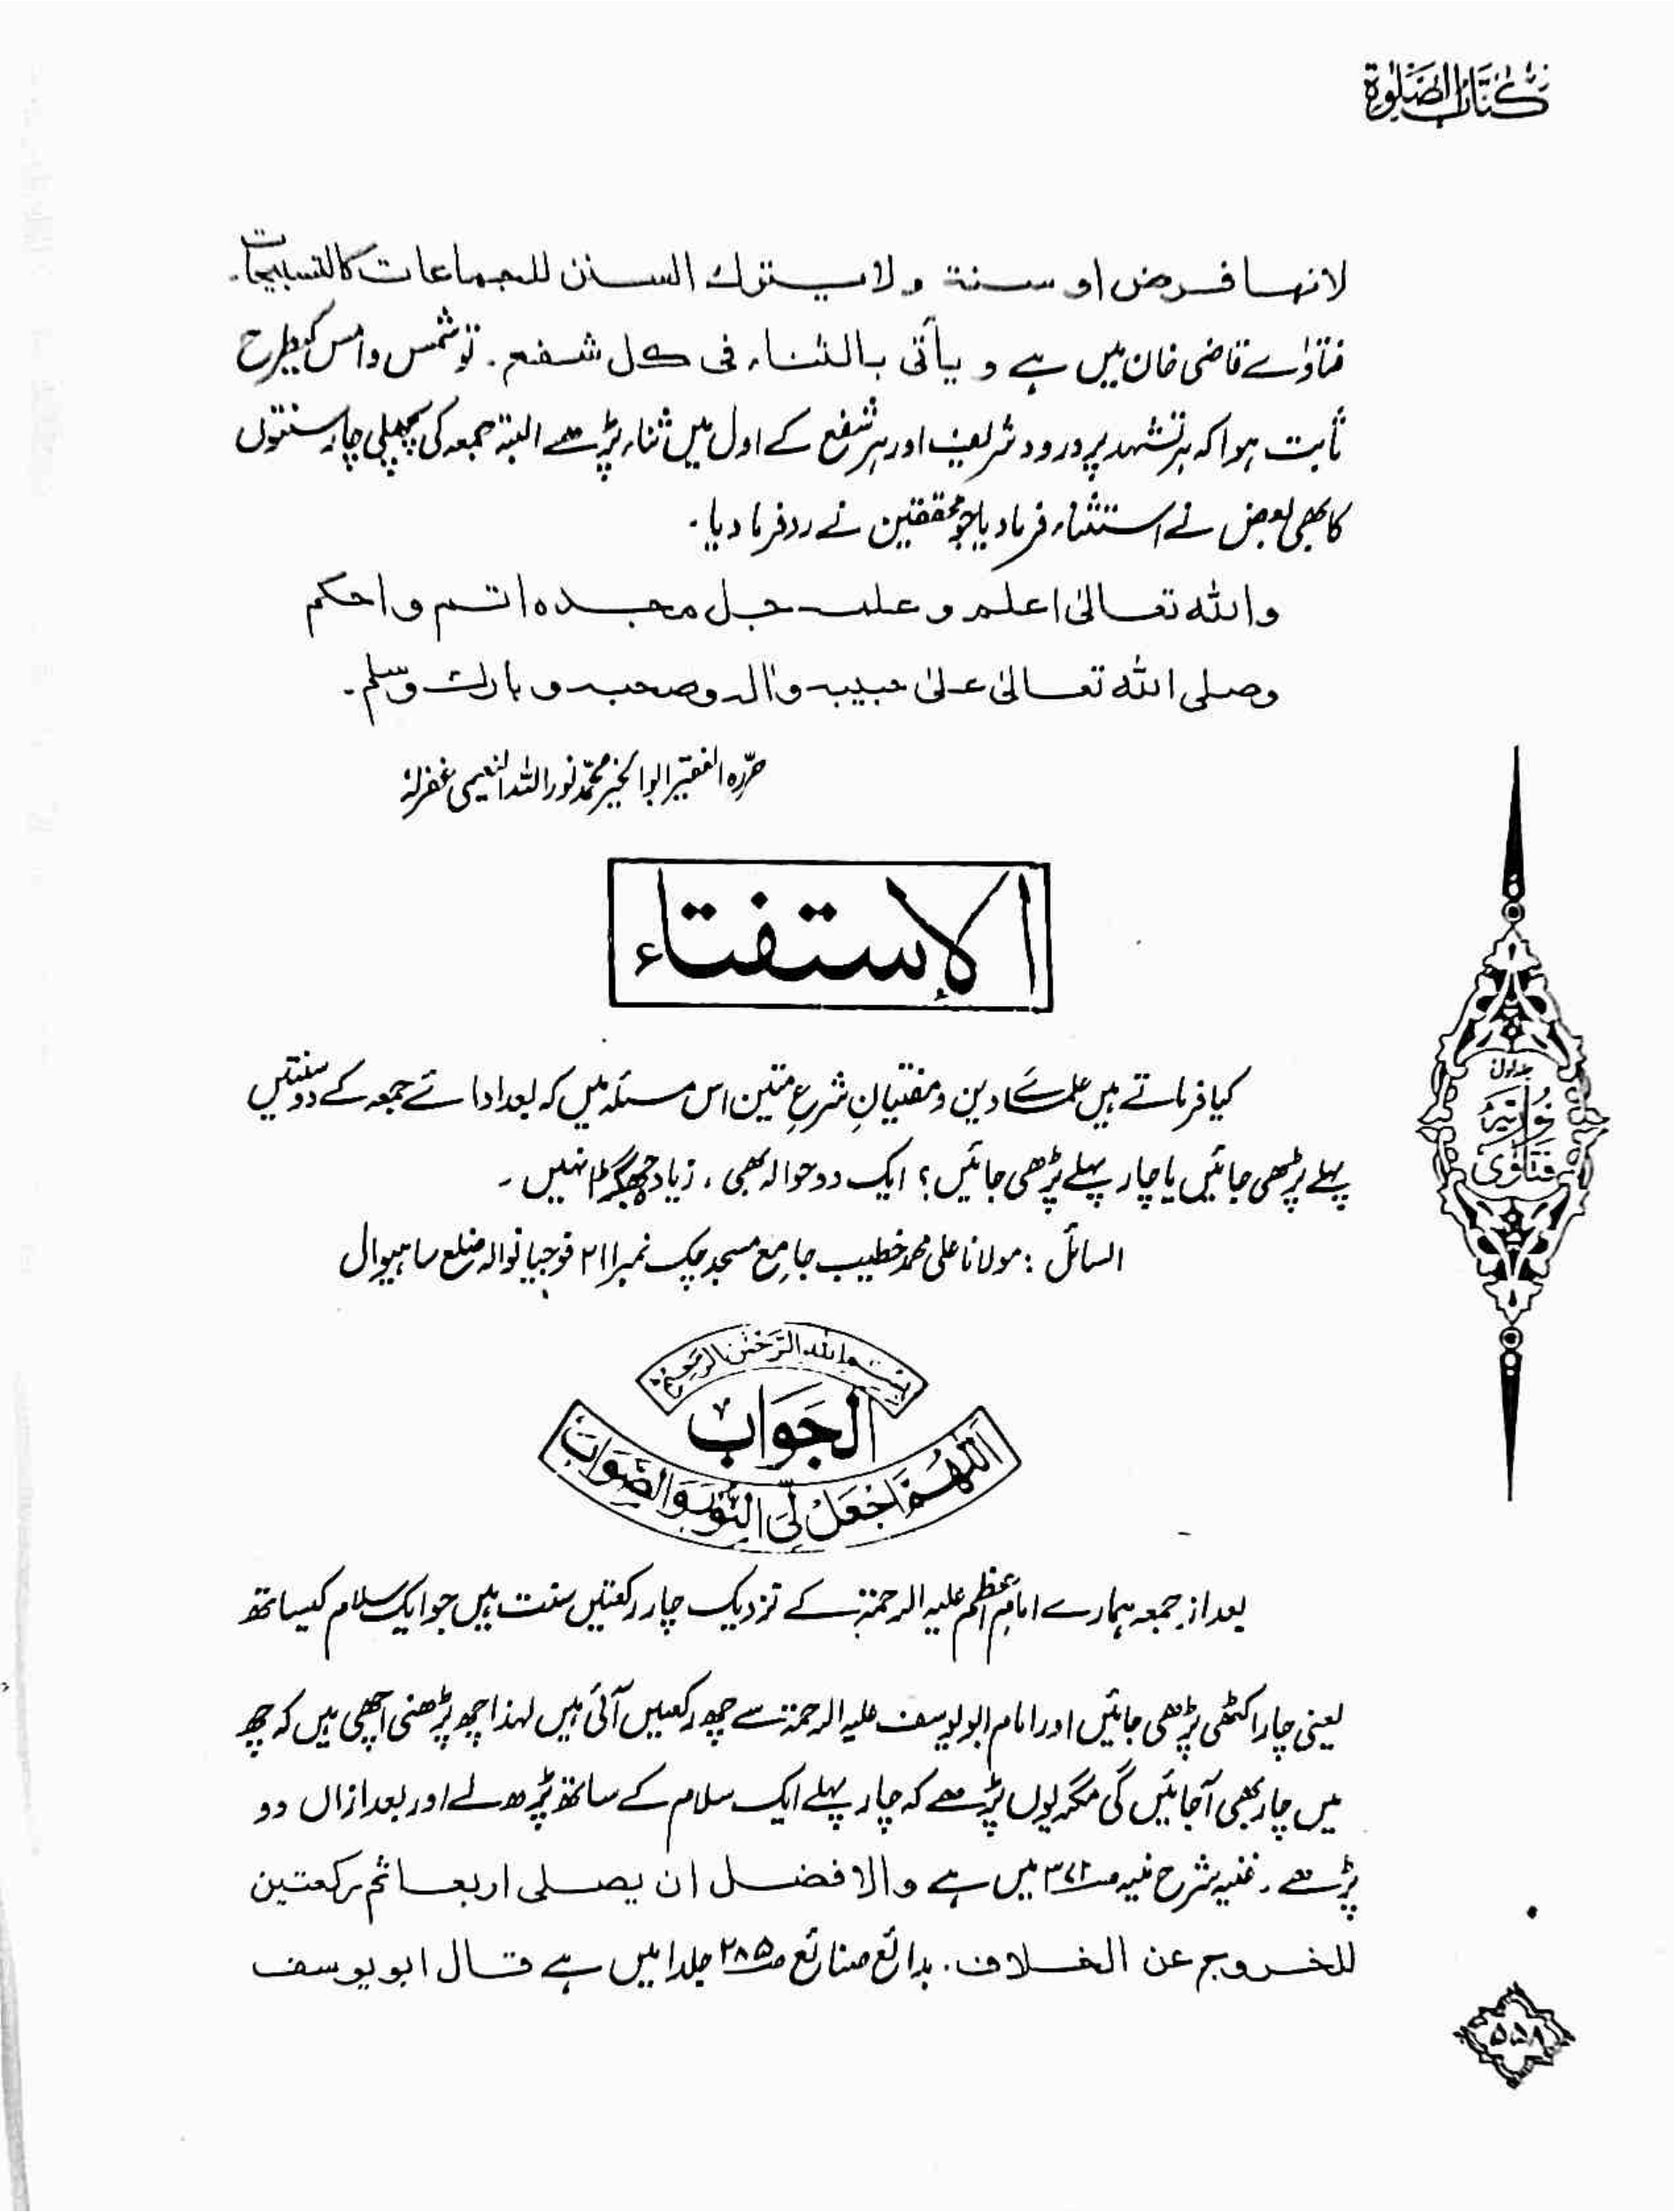 كتاب الصلوٰة
لانها فرض او سنة ولا يترك السنن للجماعات كالتسبيحات۔
فتاوٰے قاضی خان میں ہے و یأتی بالثناء فی کل شفع۔ تو شمس و امس کیطرح
ثابت ہوا کہ ہر تشہد پر درود شریف اور ہر شفع کے اول میں ثناء پڑھے البتہ جمعہ کی پچھلی چار سنتوں
کا بھی بعض نے استثناء فرما دیا جو محققین نے رد فرما دیا۔
والله تعالىٰ اعلم و علمه جل مجده اتم و احكم
وصلى الله تعالىٰ علىٰ حبيبه واٰله وصحبه و بارك وسلم۔
حرّرہ الفقیر ابو الخیر محمّد نور اللہ النعیمی غفرلہٗ
الإستفتاء
کیا فرماتے ہیں علمائے دین و مفتیانِ شرعِ متین اس مسئلہ میں کہ بعد ادائے جمعہ کے دو سنتیں
پہلے پڑھی جائیں یا چار پہلے پڑھی جائیں؟ ایک دو حوالہ بھی، زیادہ جھگڑا نہیں۔
السائل: مولانا علی محمد خطیب جامع مسجد چک نمبر ۲۱۱ فوجیانوالہ ضلع ساہیوال
بسم الله الرحمٰن الرحيم
الجَوَابُ
اَللّٰهُمَّ اجْعَلْ لِّيَ النُّوْرَ وَالصَّوَابَ
بعد از جمعہ ہمارے امامِ اعظم علیہ الرحمۃ کے نزدیک چار رکعتیں سنت ہیں جو ایک سلام کیساتھ
یعنی چار اکٹھی پڑھی جائیں اور امام ابو یوسف علیہ الرحمۃ سے چھ رکعتیں آئی ہیں لہذا چھ پڑھنی اچھی ہیں کہ چھ
میں چار بھی آجائیں گی مگر یوں پڑھے کہ چار پہلے ایک سلام کے ساتھ پڑھ لے اور بعد ازاں دو
پڑھے۔ غنیہ شرح منیہ میں ہے والافضل ان يصلى اربعا ثم ركعتين
للخروج عن الخلاف۔ بدائع صنائع ص۲۸۵ جلد۱ میں ہے قال ابو يوسف
جلد اول
فتاوٰی نوریہ
۵۵۸